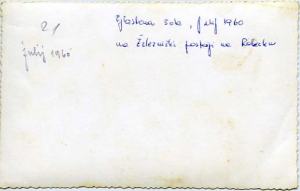 21
julij 1960
Glasbena šola, julij 1960
na Železniški postaji na Rakeku